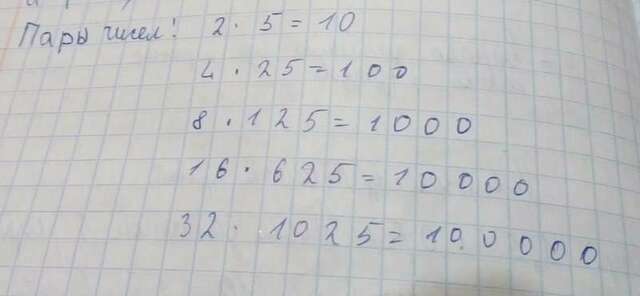 Пары чисел! 2 · 5 = 10
4 · 25 = 100
8 · 125 = 1000
16 · 625 = 10000
32 · 1025 = 100000